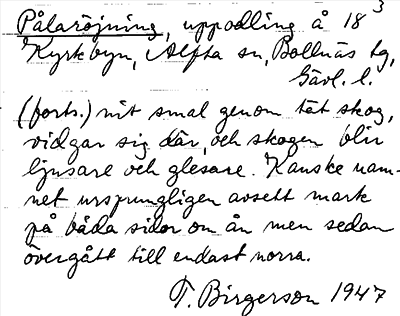 Pålaröjning, uppodling å 18 3
Kyrkbyn, Alfta sn, Bollnäs tg,
Gävl. l.
(forts.) nit smal genom tät skog,
vidgar sig där, och skogen blir
ljusare och glesare. Kanske nam-
net ursprungligen avsett mark
på båda sidor om ån men sedan
övergått till endast norra.
T. Birgerson 1947